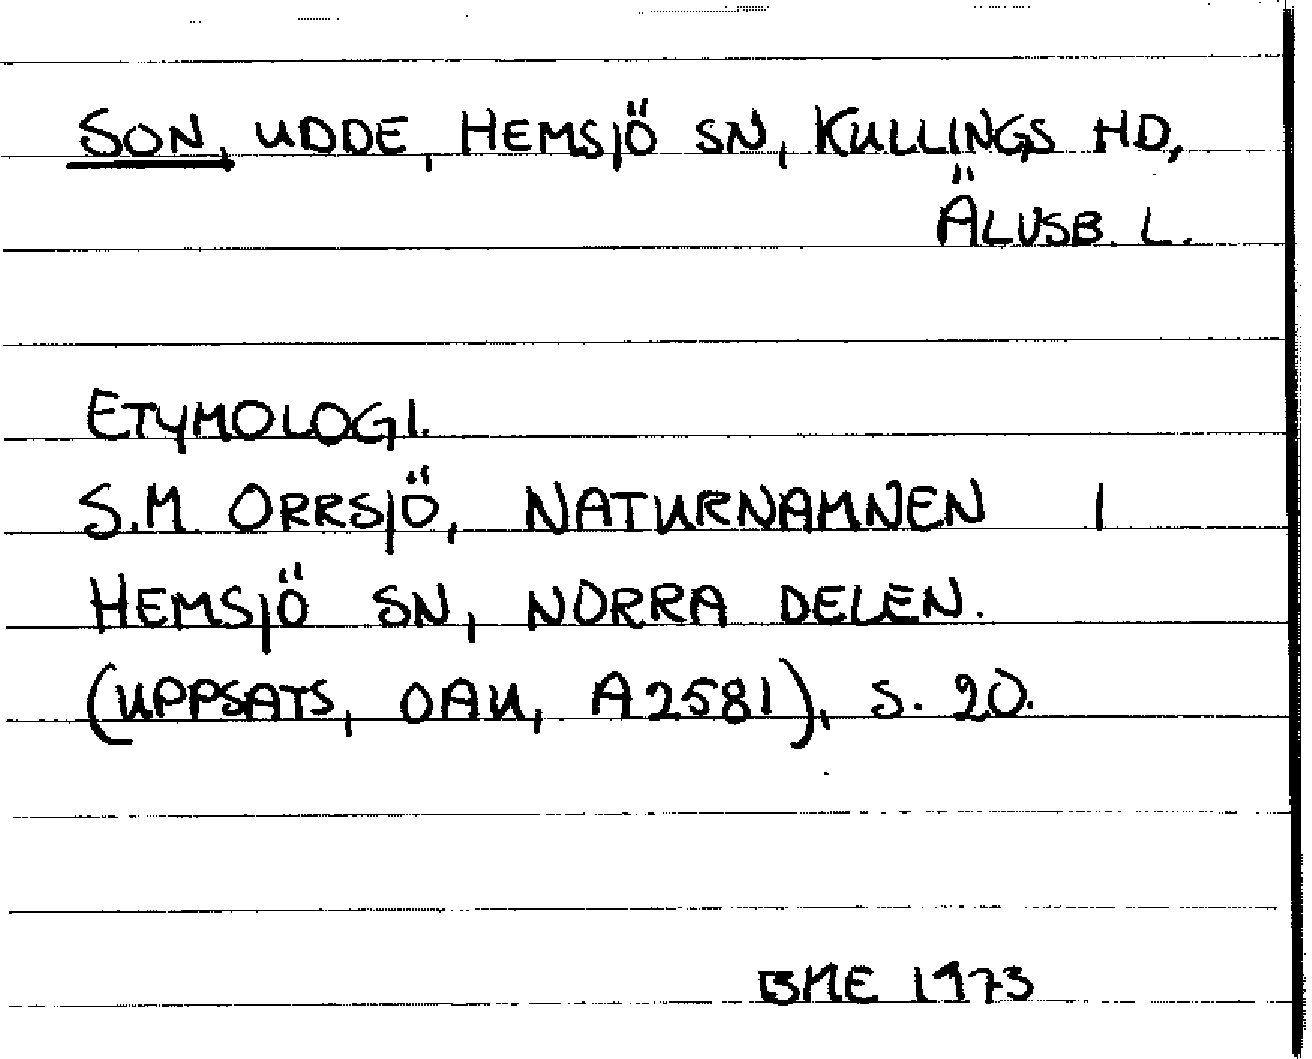 SON, UDDE, HEMSJÖ SN, KULLINGS HD,
ÄLVSB. L.
ETYMOLOGI.
S.M. ORRSJÖ, NATURNAMNEN I
HEMSJÖ SN, NORRA DELEN.
(UPPSATS, OAU, A2581), S. 20.
BME 1973